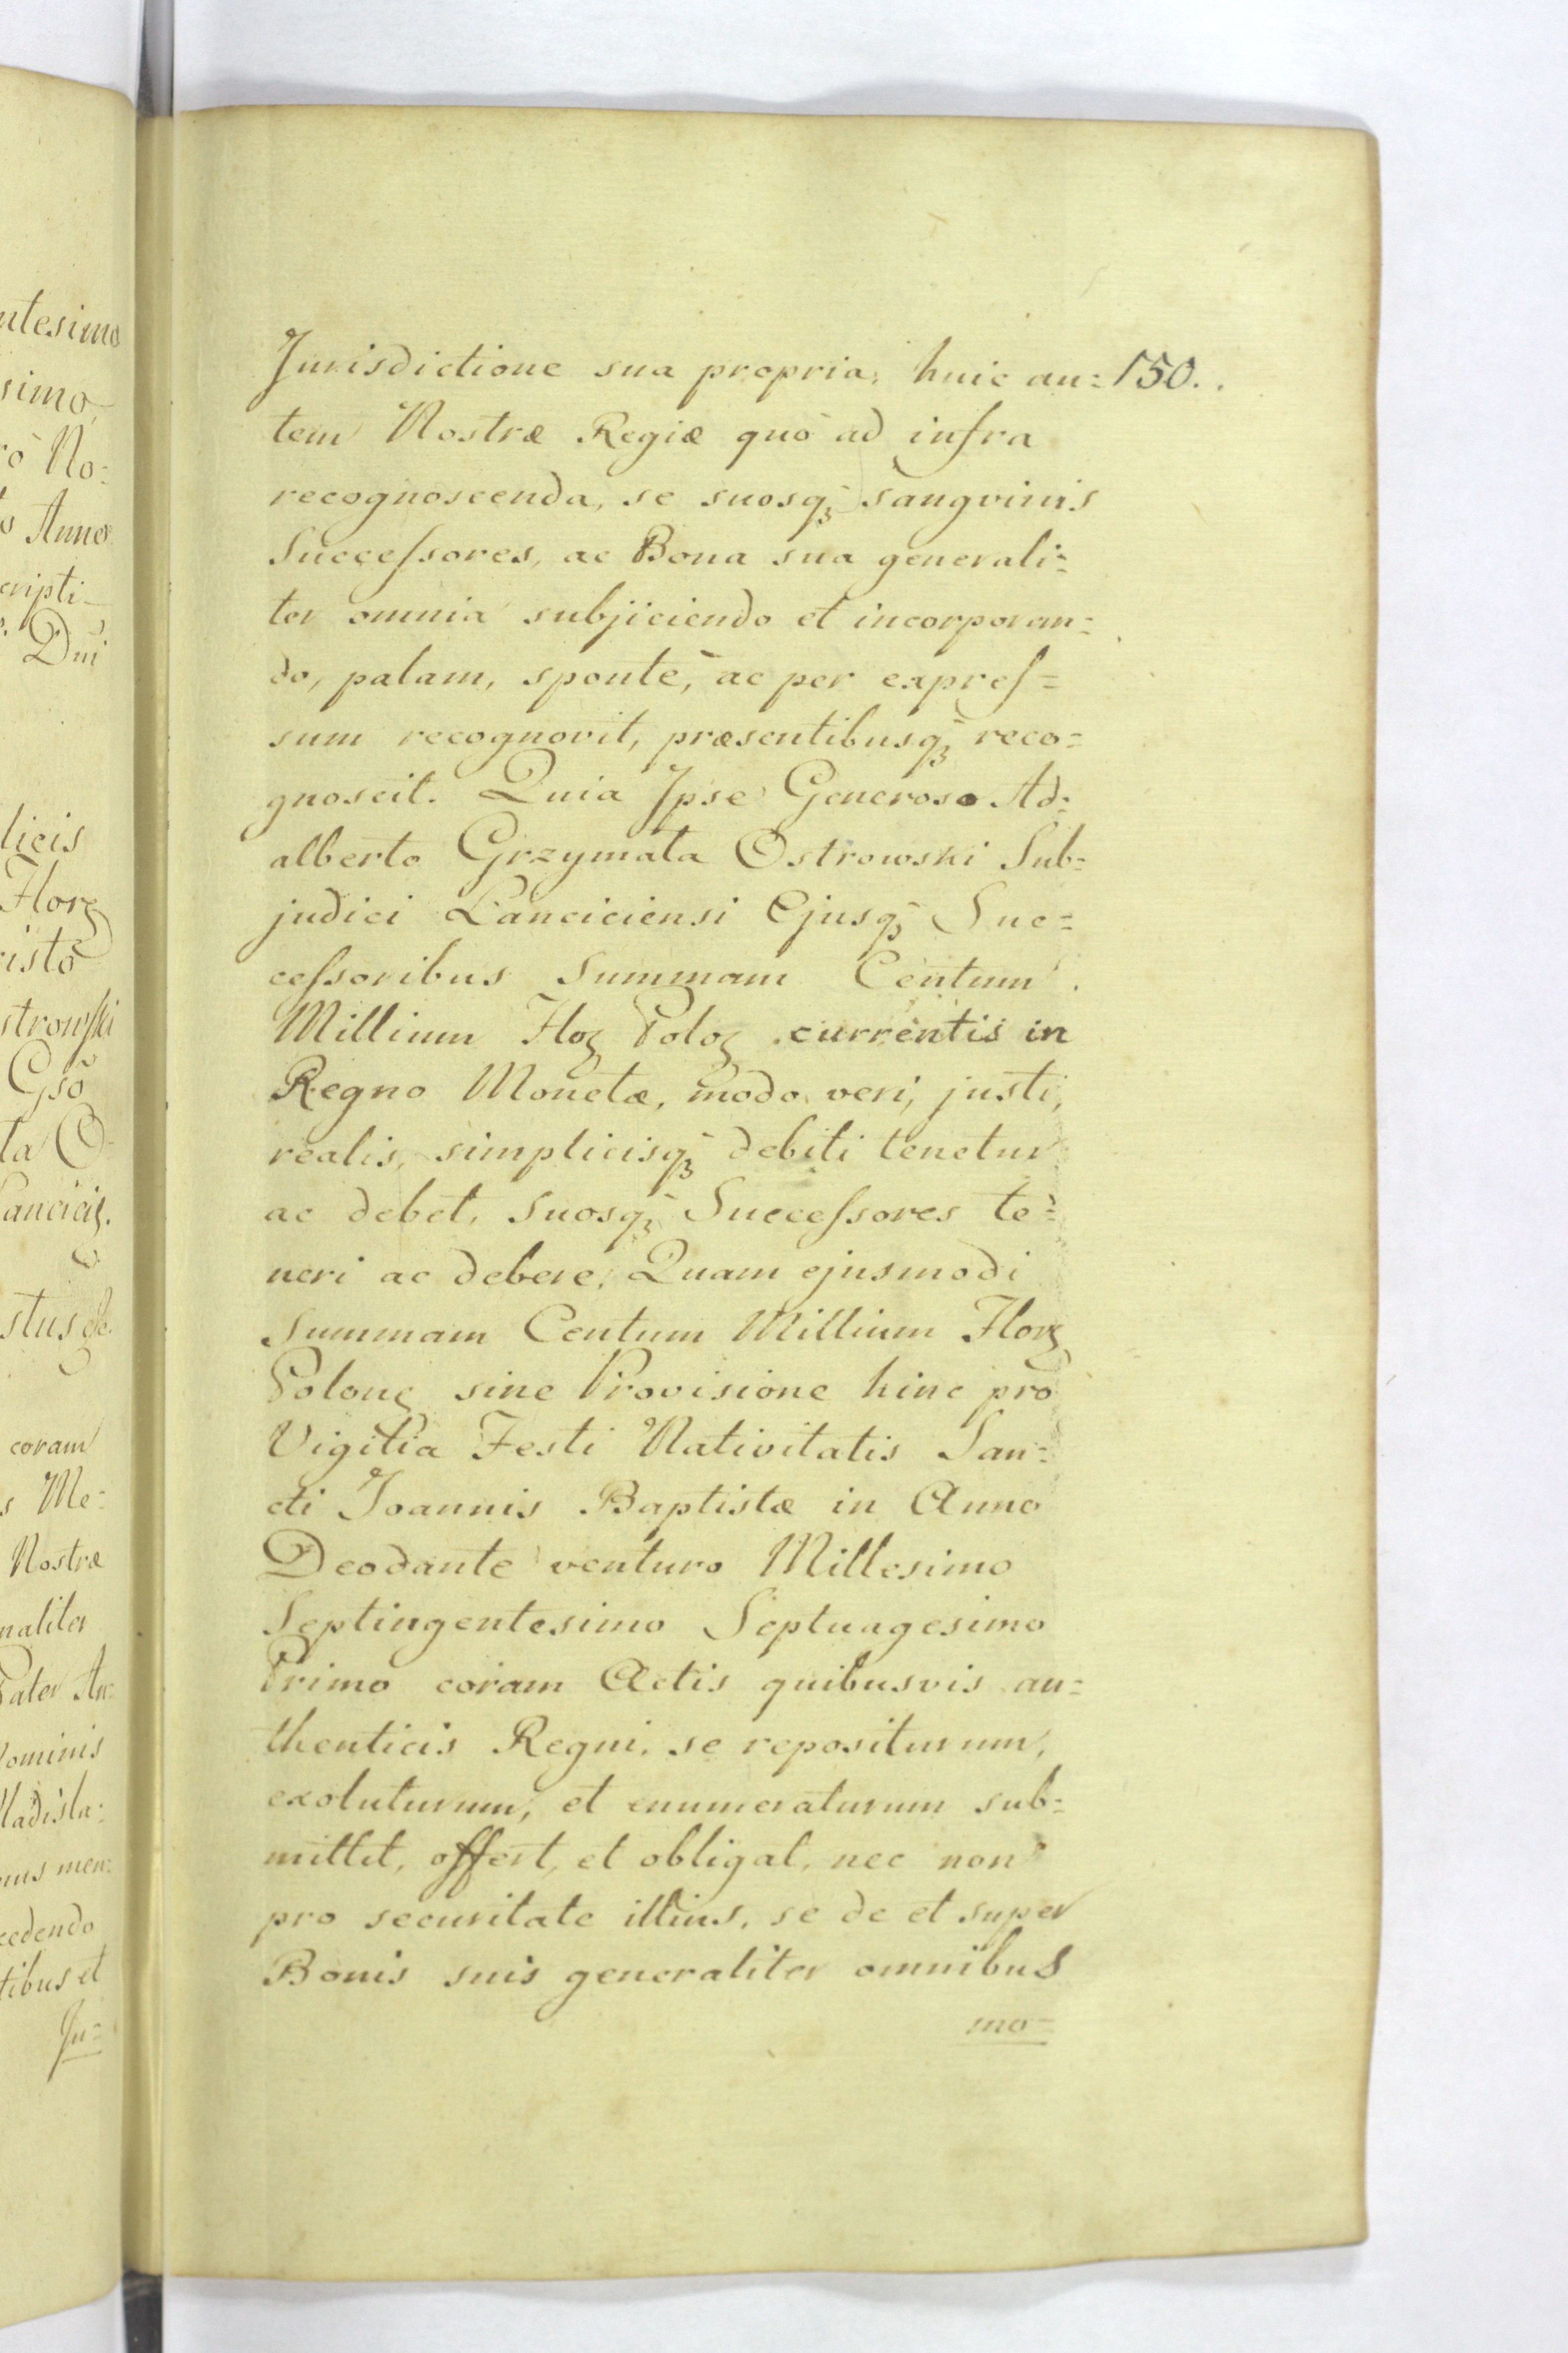 ntesimo
simo,
rò No=
o Anno
cripti-
Dni
licis
Flor
ristõ
strowski
Gsõ
ta O-
Lancici.
stus
coram
s Me=
Nostræ
naliter
Pater An=
Dominis
ladisla=
ius men=
cedendo
tibus et
Ju=
Jurisdictione sua propria, huic au= 150..
tem Nostræ Regiæ quò ad infra
recognoscenda, se suosqꝫ sangvinis
Successores, ac Bona sua generali=
ter omnia subjiciendo et incorporan=
do, palam, spontè, ac per expres=
sum recognovit, præsentibusqꝫ reco=
gnoscit. Quia Ipse Generoso Ad=
alberto Grzymała Ostrowski Sub=
judici Lanciciensi Ejusqꝫ Suc=
cessoribus Summam Centum
Millium Floꝝ Poloꝝ currentis in
Regno Monetæ, modo veri, justi,
realis, simplicisqꝫ debiti tenetur
ac debet, Suosqꝫ Successores te=
neri ac debere, Quam ejusmodi
Summam Centum Millium Florꝝ
Polonꝝ sine Provisione hinc pro
Vigilia Festi Nativitatis San=
cti Joannis Baptistæ in Anno
Deodante venturo Millesimo
Septingentesimo Septuagesimo
Primo coram Actis quibusvis au=
thenticis Regni, se repositurum,
exoluturum, et enumeraturum sub=
mittit, offert, et obligat, nec non
pro securitate illius, se de et super
Bonis suis generaliter omnibus
mo=